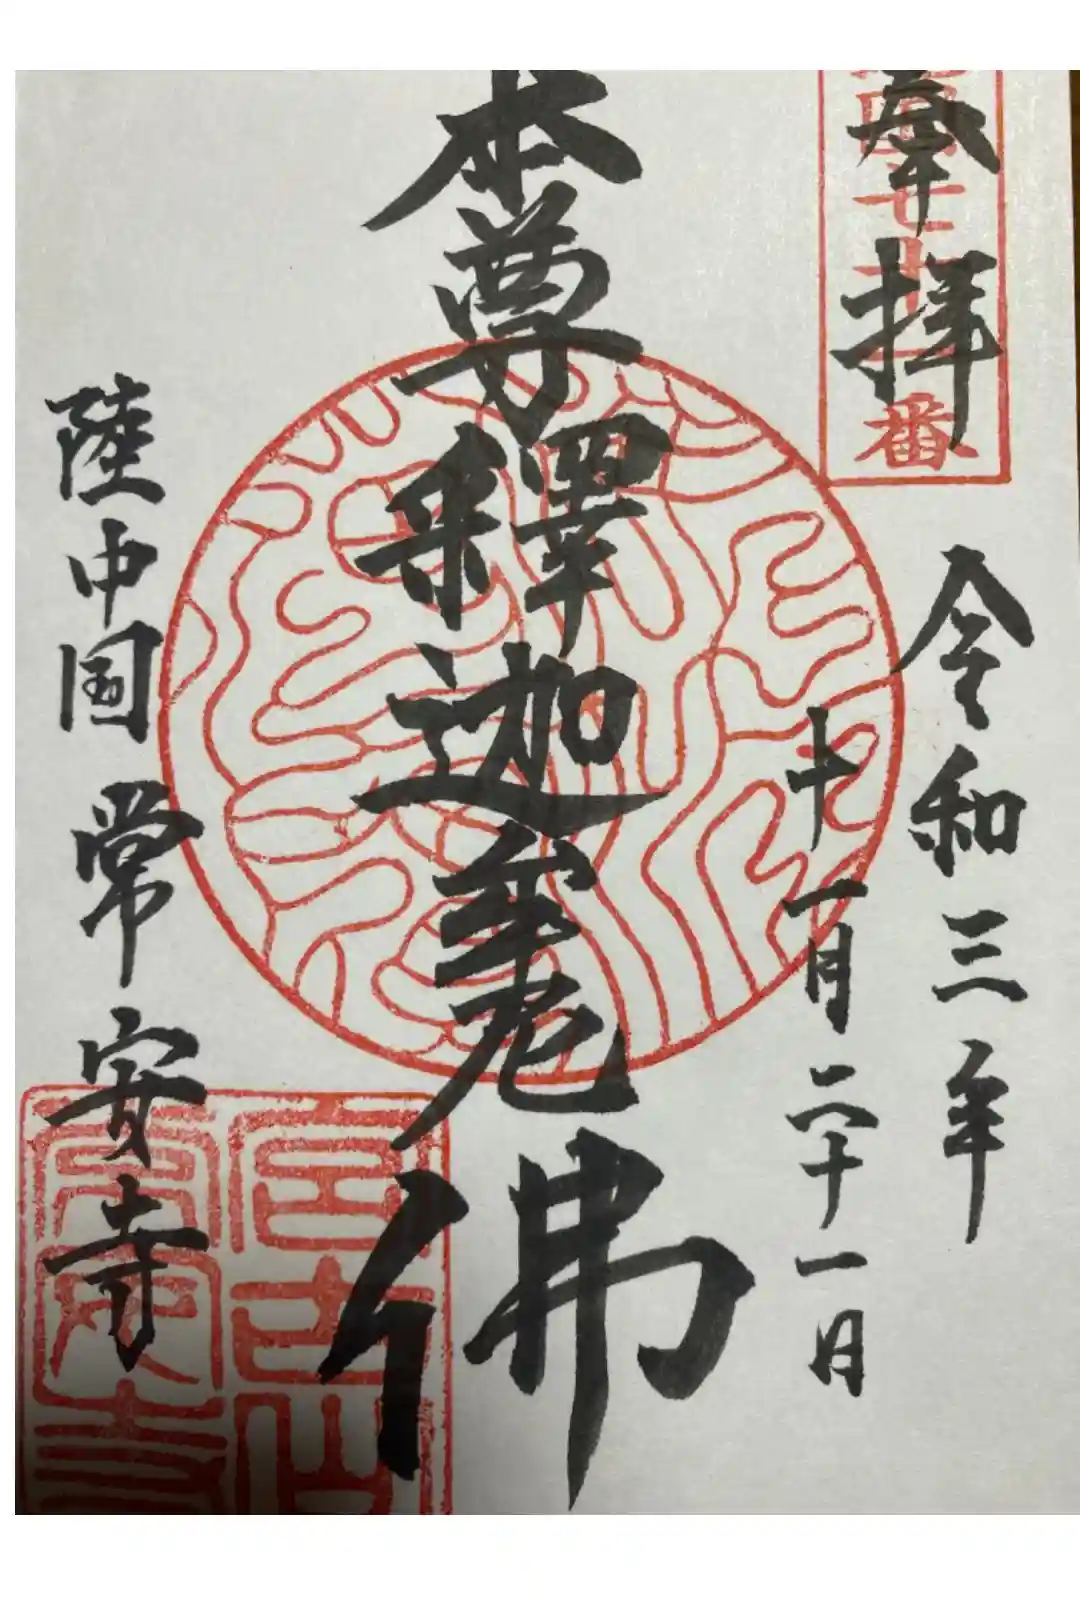 奉拝
七十一番
令和三年
十一月二十一日
本尊釋迦牟尼佛
陸中国 常安寺